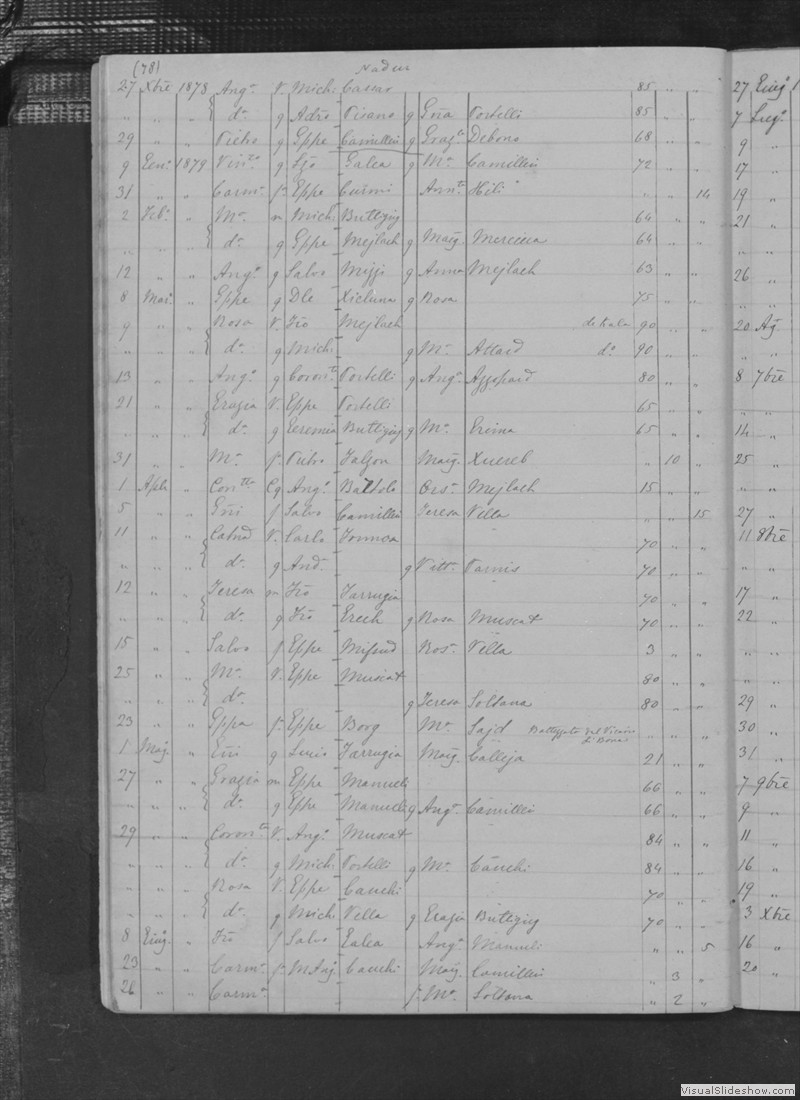 (78) Nadur
27 Xbre 1878 Angª V. Mich: Cassar 85 " "
" " " dª g Adrº Pisano g Gña Portelli 85 " "
29 " " Pietro g Gppe Camilleri g Grazª Debono 68 " "
9 Gen: 1879 g Lzo Galea g Mª Camilleri 72 " "
31 " " Carmª f. Gppe Curmi Hili " " 14
2 Feb: " Mª m Mich: Buttigieg 64 " "
" " " dª g Gppe Mejlach g Marg: Mercieca 64 " "
12 " " Angª g Salvº Mizzi g Anna Mejlach 63 " "
8 Mar: " Gppe g Dle Xicluna g Rosa 75 " "
9 " " Rosa V. Frõ Mejlach de Kala 90 " "
" " " dª g Mich: g Mª Attard dº 90 " "
13 " " Angª g Portelli g Angª Azzopard 80 " "
21 " " Grazia V. Gppe Portelli 65 " "
" " " dª g Geremia Buttigieg g Mª 65 " "
31 " " Mª f. Pietro Falzon Marg. Xuereb " 10 "
1 Aple " Cg Angº Battolo Mejlach 15 " "
5 " " f Salvº Camilleri Teresa Vella " " 15
11 " " V. Carlo 70 " "
" " " dª g And: g Vittª 70 " "
12 " " Teresa m Frõ Farrugia 70 " "
" " " dª g Frõ Grech g Rosa Muscat 70 " "
15 " " Salvº f Gppe Mifsud Rosª Vella 3 " "
25 " " Mª V. Gppe Muscat 80 " "
" " " dª g Teresa Soltana 80 " "
23 " " Gppa f. Gppe Borg Mª Sajd Battezzata dal " " "
1 Mag. " g Luis Farrugia Marg. Calleja 21 " "
27 " " Grazia m Gppe Manueli 66 " "
" " " dª g Gppe Manueli g Angª Camilleri 66 " "
29 " " V. Angº Muscat 84 " "
" " " dª g Mich: Portelli g Mª Cauchi 84 " "
" " " Rosa V. Gppe Cauchi 70 " "
" " " dª g Mich: Vella g Grazia Buttigieg 70 " "
8 Giug. " Frõ f Salvº Galea Angª Manueli " " 5
23 " " Carmª f. Cauchi Marg. Camilleri " 3 "
26 " " Carmª f. Mª Soltana " 2 "
27 Giugº
7 Lugº
9 "
17 "
19 "
21 "
" "
26 "
" "
20 Ag
" "
8 7bre
" "
14 "
25 "
" "
27 "
11 8bre
" "
17 "
22 "
" "
29 "
30 "
31 "
7 9bre
9 "
11 "
16 "
19 "
3 Xbre
16 "
20 "
VisualSlideshow.com